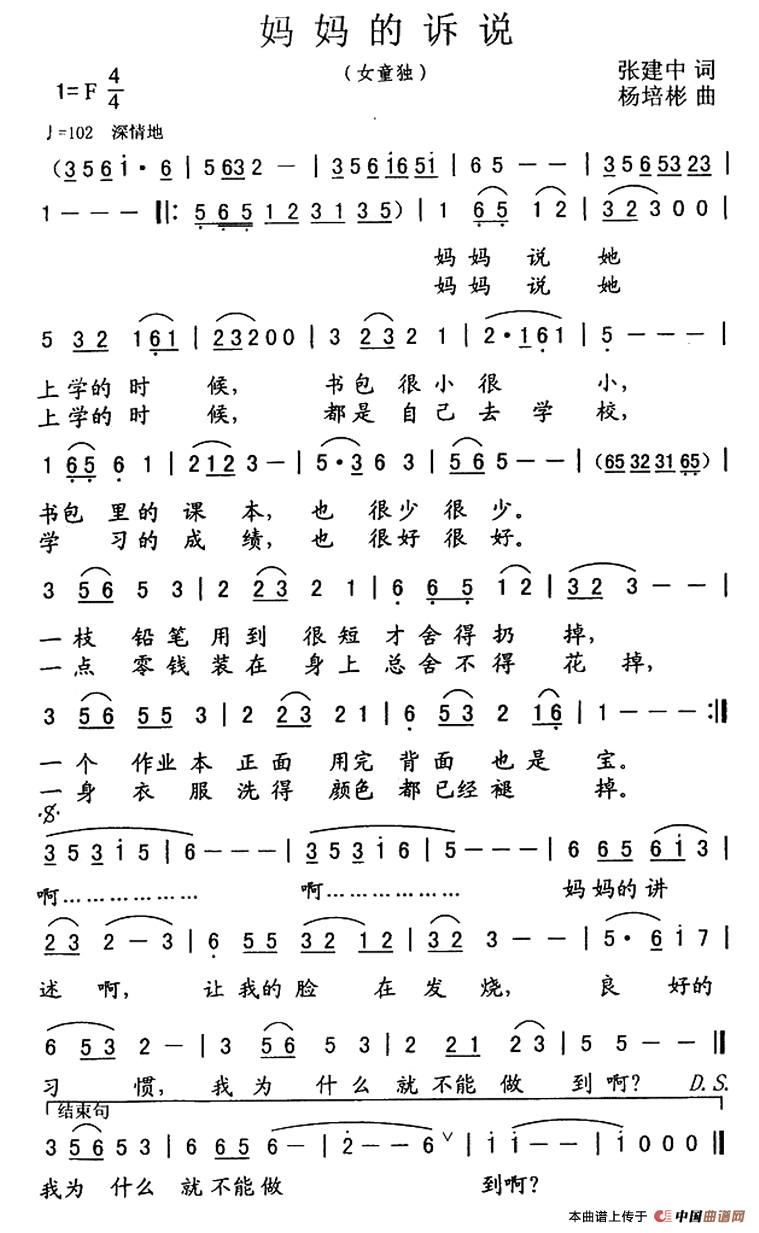 妈妈的诉说
（女童独）
1=F 4/4
张建中 词
杨培彬 曲
♩=102 深情地
（3 5 6 i· 6 | 5 632 - | 3 5 6 i6 5i | 6 5 - - | 3 5 6 53 23 |
1 - - - ‖: 5 6 5 1 2 3 1 3 5） | 1 6 5 1 2 | 3 2 3 0 0 |
妈妈 说 她
妈妈 说 她
5 3 2 1 6 1 | 2 3 2 0 0 | 3 2 3 2 1 | 2· 1 6 1 | 5 - - - |
上学的 时 候， 书包 很 小 很 小，
上学的 时 候， 都是 自 己 去 学 校，
1 6 5 6 1 | 2 1 2 3 - | 5· 3 6 3 | 5 6 5 - - | （65 32 31 65） |
书包 里的 课 本， 也 很少 很 少。
学 习的 成 绩， 也 很好 很 好。
3 5 6 5 3 | 2 2 3 2 1 | 6 6 5 1 2 | 3 2 3 - - |
一枝 铅笔 用到 很短 才舍得扔 掉，
一点 零钱 装在 身上 总舍不得 花 掉，
3 5 6 5 5 3 | 2 2 3 2 1 | 6 5 3 2 1 6 | 1 - - - :‖
一个 作业本 正面 用完 背面 也是 宝。
一身 衣 服 洗得 颜色 都已经褪 掉。
𝄋
3 5 3 i 5 | 6 - - - | 3 5 3 i 6 | 5 - - - | 6 6 5 6 i 3 |
啊……………… 啊……………… 妈妈的 讲
2 3 2 - 3 | 6 5 5 3 2 1 2 | 3 2 3 - - | 5· 6 i 7 |
述 啊， 让 我的 脸 在 发 烧， 良 好的
6 5 3 2 - | 3 5 6 5 3 | 2 2 1 2 3 | 5 5 - - ‖
习 惯， 我 为 什么 就 不能 做 到啊？ D.S.
结束句
3 5 6 5 3 | 6 6 5 6 - | 2 - - 6 ∨ | i i - - | i 0 0 0 ‖
我为 什么 就不能做 到啊？
本曲谱上传于 中国曲谱网